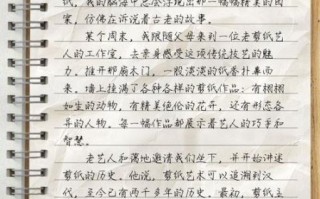 纸，我的脑海中总会浮现出那一幅幅精美的图
案，仿佛在诉说着古老的故事。
某个周末，我跟随父母来到一位老剪纸艺
人的工作室，去亲身感受这项传统技艺的魅
力。推开那扇木门，一股淡淡的纸香扑面而
来。墙上挂满了各种各样的剪纸作品：有栩栩
如生的动物，有精美绝伦的花卉，还有形态各
异的人物。每一幅作品都展示着艺人的巧手和
智慧。
老艺人和蔼地邀请我们坐下，并开始讲述
剪纸的历史。他说，剪纸艺术可以追溯到汉
代，至今已有两千多年的历史。最初，剪纸主